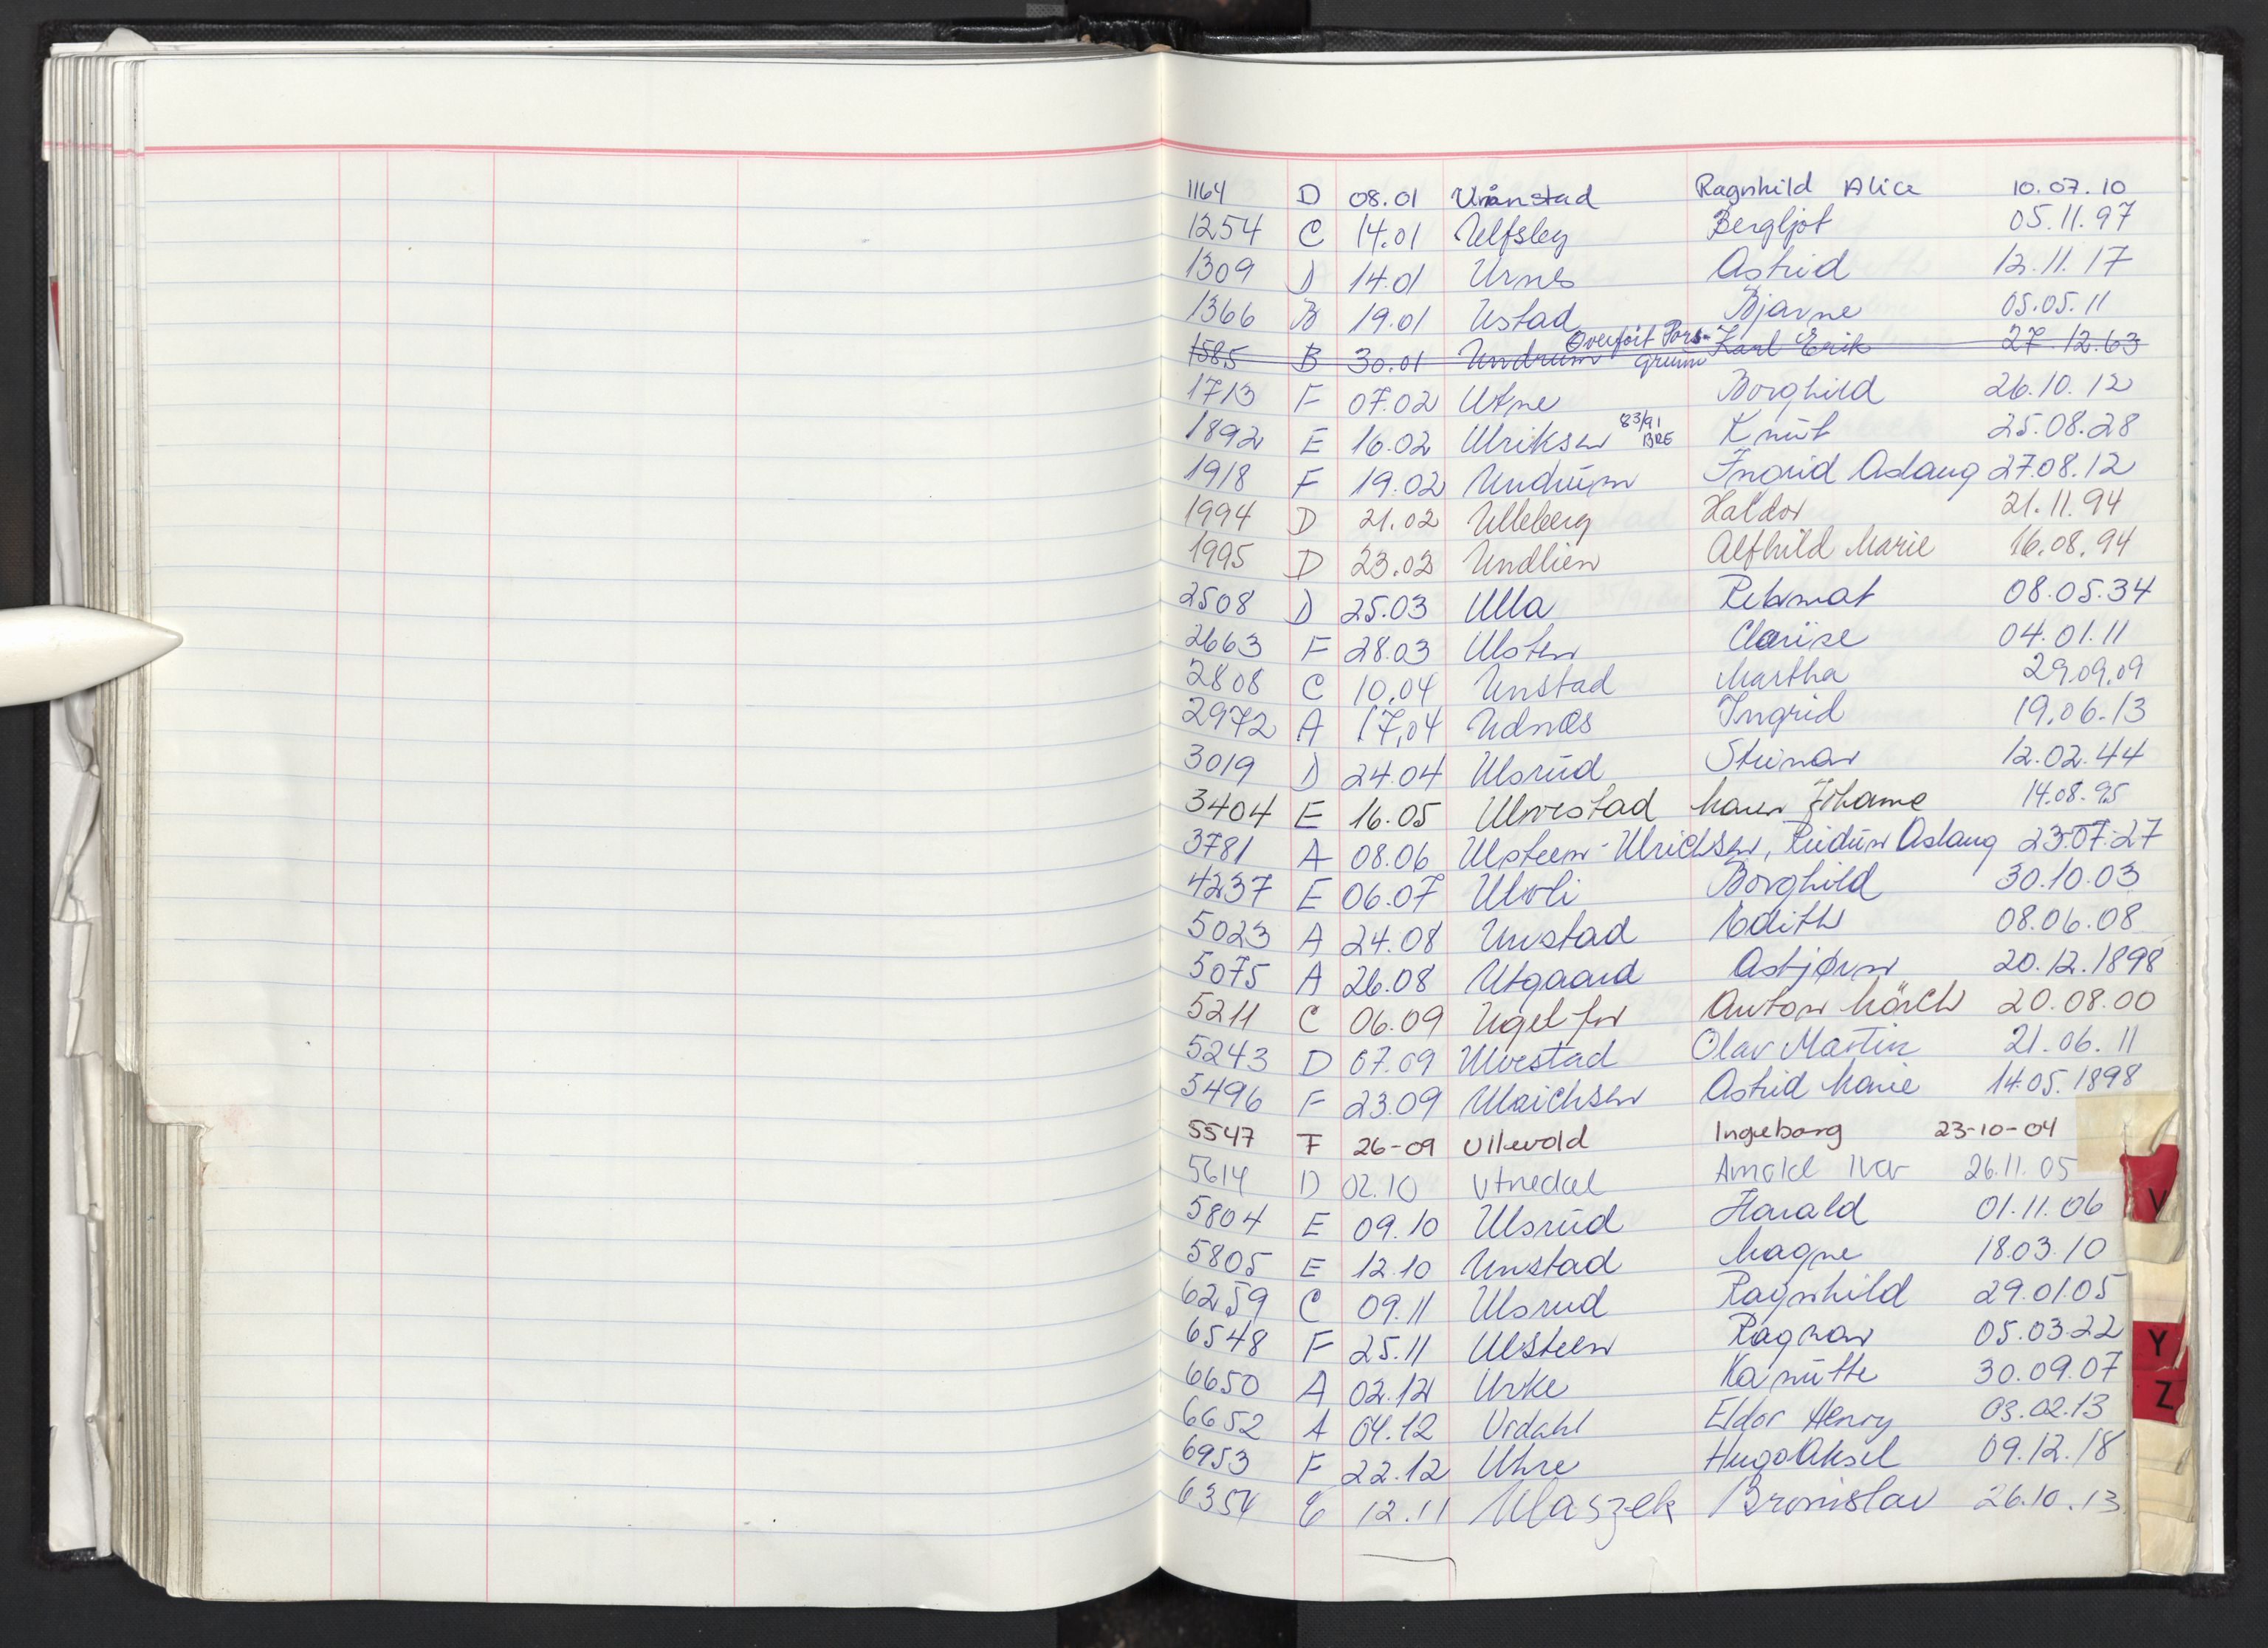 1164 D 08.01 Unnstad Ragnhild Alice 10.07.10
1254 C 14.01 Ulfsby Bergljot 05.11.97
1309 D 14.01 Urnes Astrid 12.11.17
1366 B 19.01 Ustad Bjarne 05.05.11
1585 B 30.01 Undrum Overført Pors-grunn Karl Erik 27.12.63
1713 F 07.02 Utne Borghild 26.10.12
1892 E 16.02 Ulriksen 83/91 BRE Knut 25.08.28
1918 F 19.02 Undrum Ingrid Aslaug 27.08.12
1994 D 21.02 Ulleberg Haldor 21.11.94
1995 D 23.02 Undlien Alfhild Marie 16.08.94
2508 D 25.03 Ulla Rehmat 08.05.34
2663 F 28.03 Ulsten Clarise 04.01.11
2808 C 10.04 Unstad Martha 29.09.09
2972 A 17.04 Udnæs Ingrid 19.06.13
3019 D 24.04 Ulsrud Steinar 12.02.44
3404 E 16.05 Ulvestad Maren Johanne 14.08.95
3781 A 08.06 Ulsteen-Ulrichsen, Reidun Aslaug 23.07.27
4237 E 06.07 Ulvoli Borghild 30.10.03
5023 A 24.08 Unstad Edith 08.06.08
5075 A 26.08 Utgaard Asbjørn 20.12.1898
5211 C 06.09 Ugelfor Anton Mörch 20.08.00
5243 D 07.09 Ulvestad Olav Martin 21.06.11
5496 F 23.09 Ulrichsen Astrid Marie 14.05.1898
5547 F 26-09 Ullevold Ingeborg 23-10-04
5614 D 02.10 Utnedal Arnold Ivar 26.11.05
5804 E 09.10 Ulsrud Harald 01.11.06
V
5805 E 12.10 Unstad Magne 18.03.10
6259 C 09.11 Ulsrud Ragnhild 29.01.05
6548 F 25.11 Ulsteen Ragnar 05.03.22
Y
6650 A 02.12 Urke Kanutte 30.09.07
Z
6652 A 04.12 Urdahl Eldor Henry 03.02.13
6953 F 22.12 Uhre Hugo Aksel 09.12.18
6354 E 12.11 Ulaszek Bronislav 26.10.13